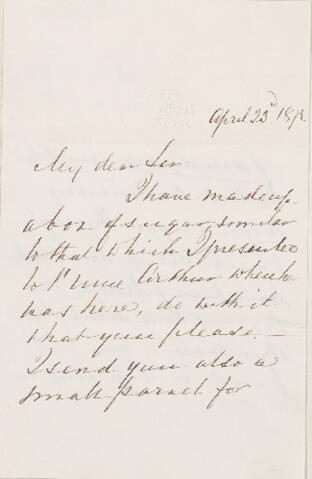 April 23rd 1872
My dear Sir
I have made up
a box of sugar, similar
to that which I presented
to Prince Arthur when he
was here, do with it
what you please —
I send you also a
small parcel for